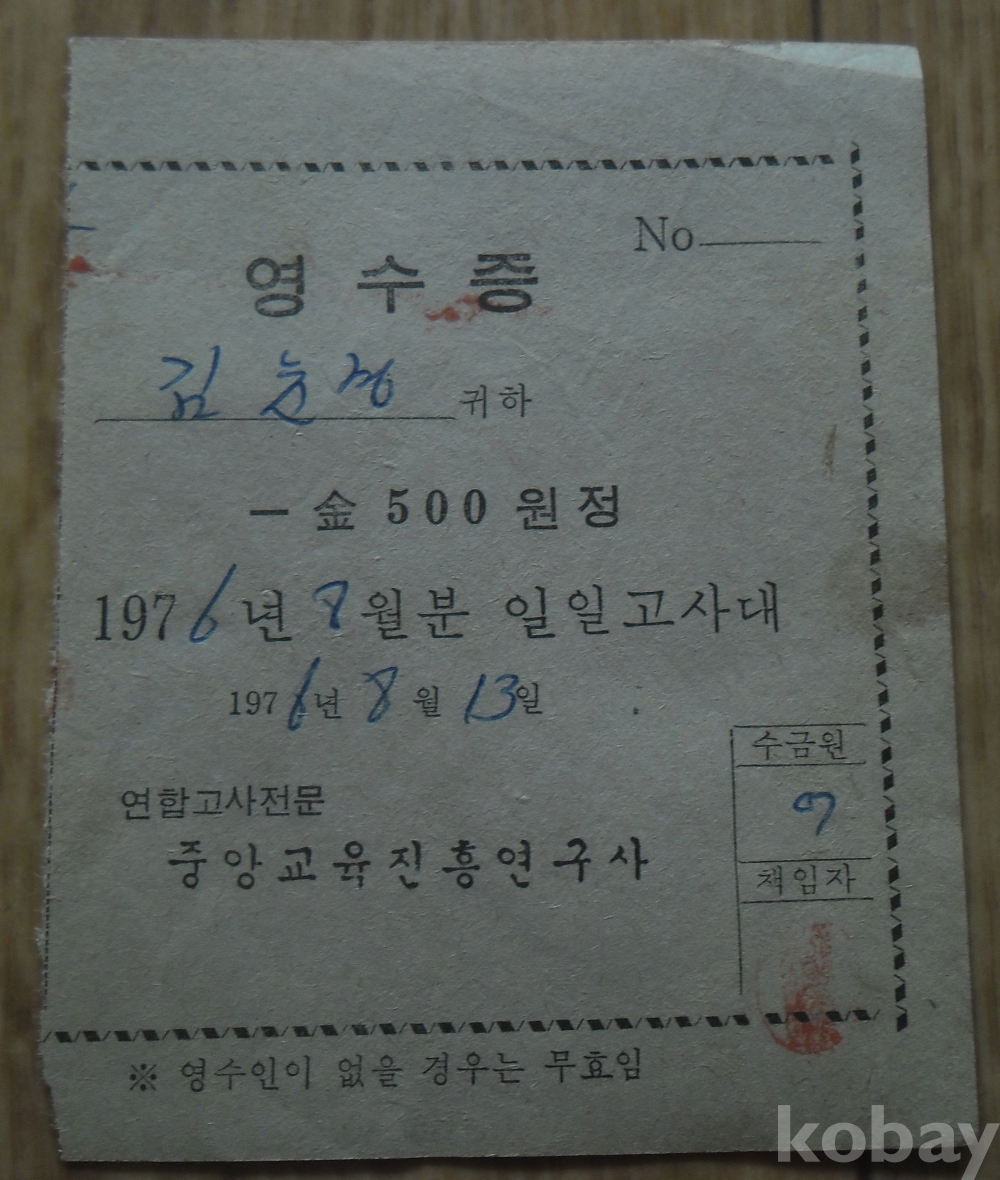 No
영수증
김 귀하
一金 500 원정
1976년 8월분 일일고사대
1976년 8월 13일
수금원
연합고사전문
중앙교육진흥연구사
책임자
※ 영수인이 없을 경우는 무효임
kobay